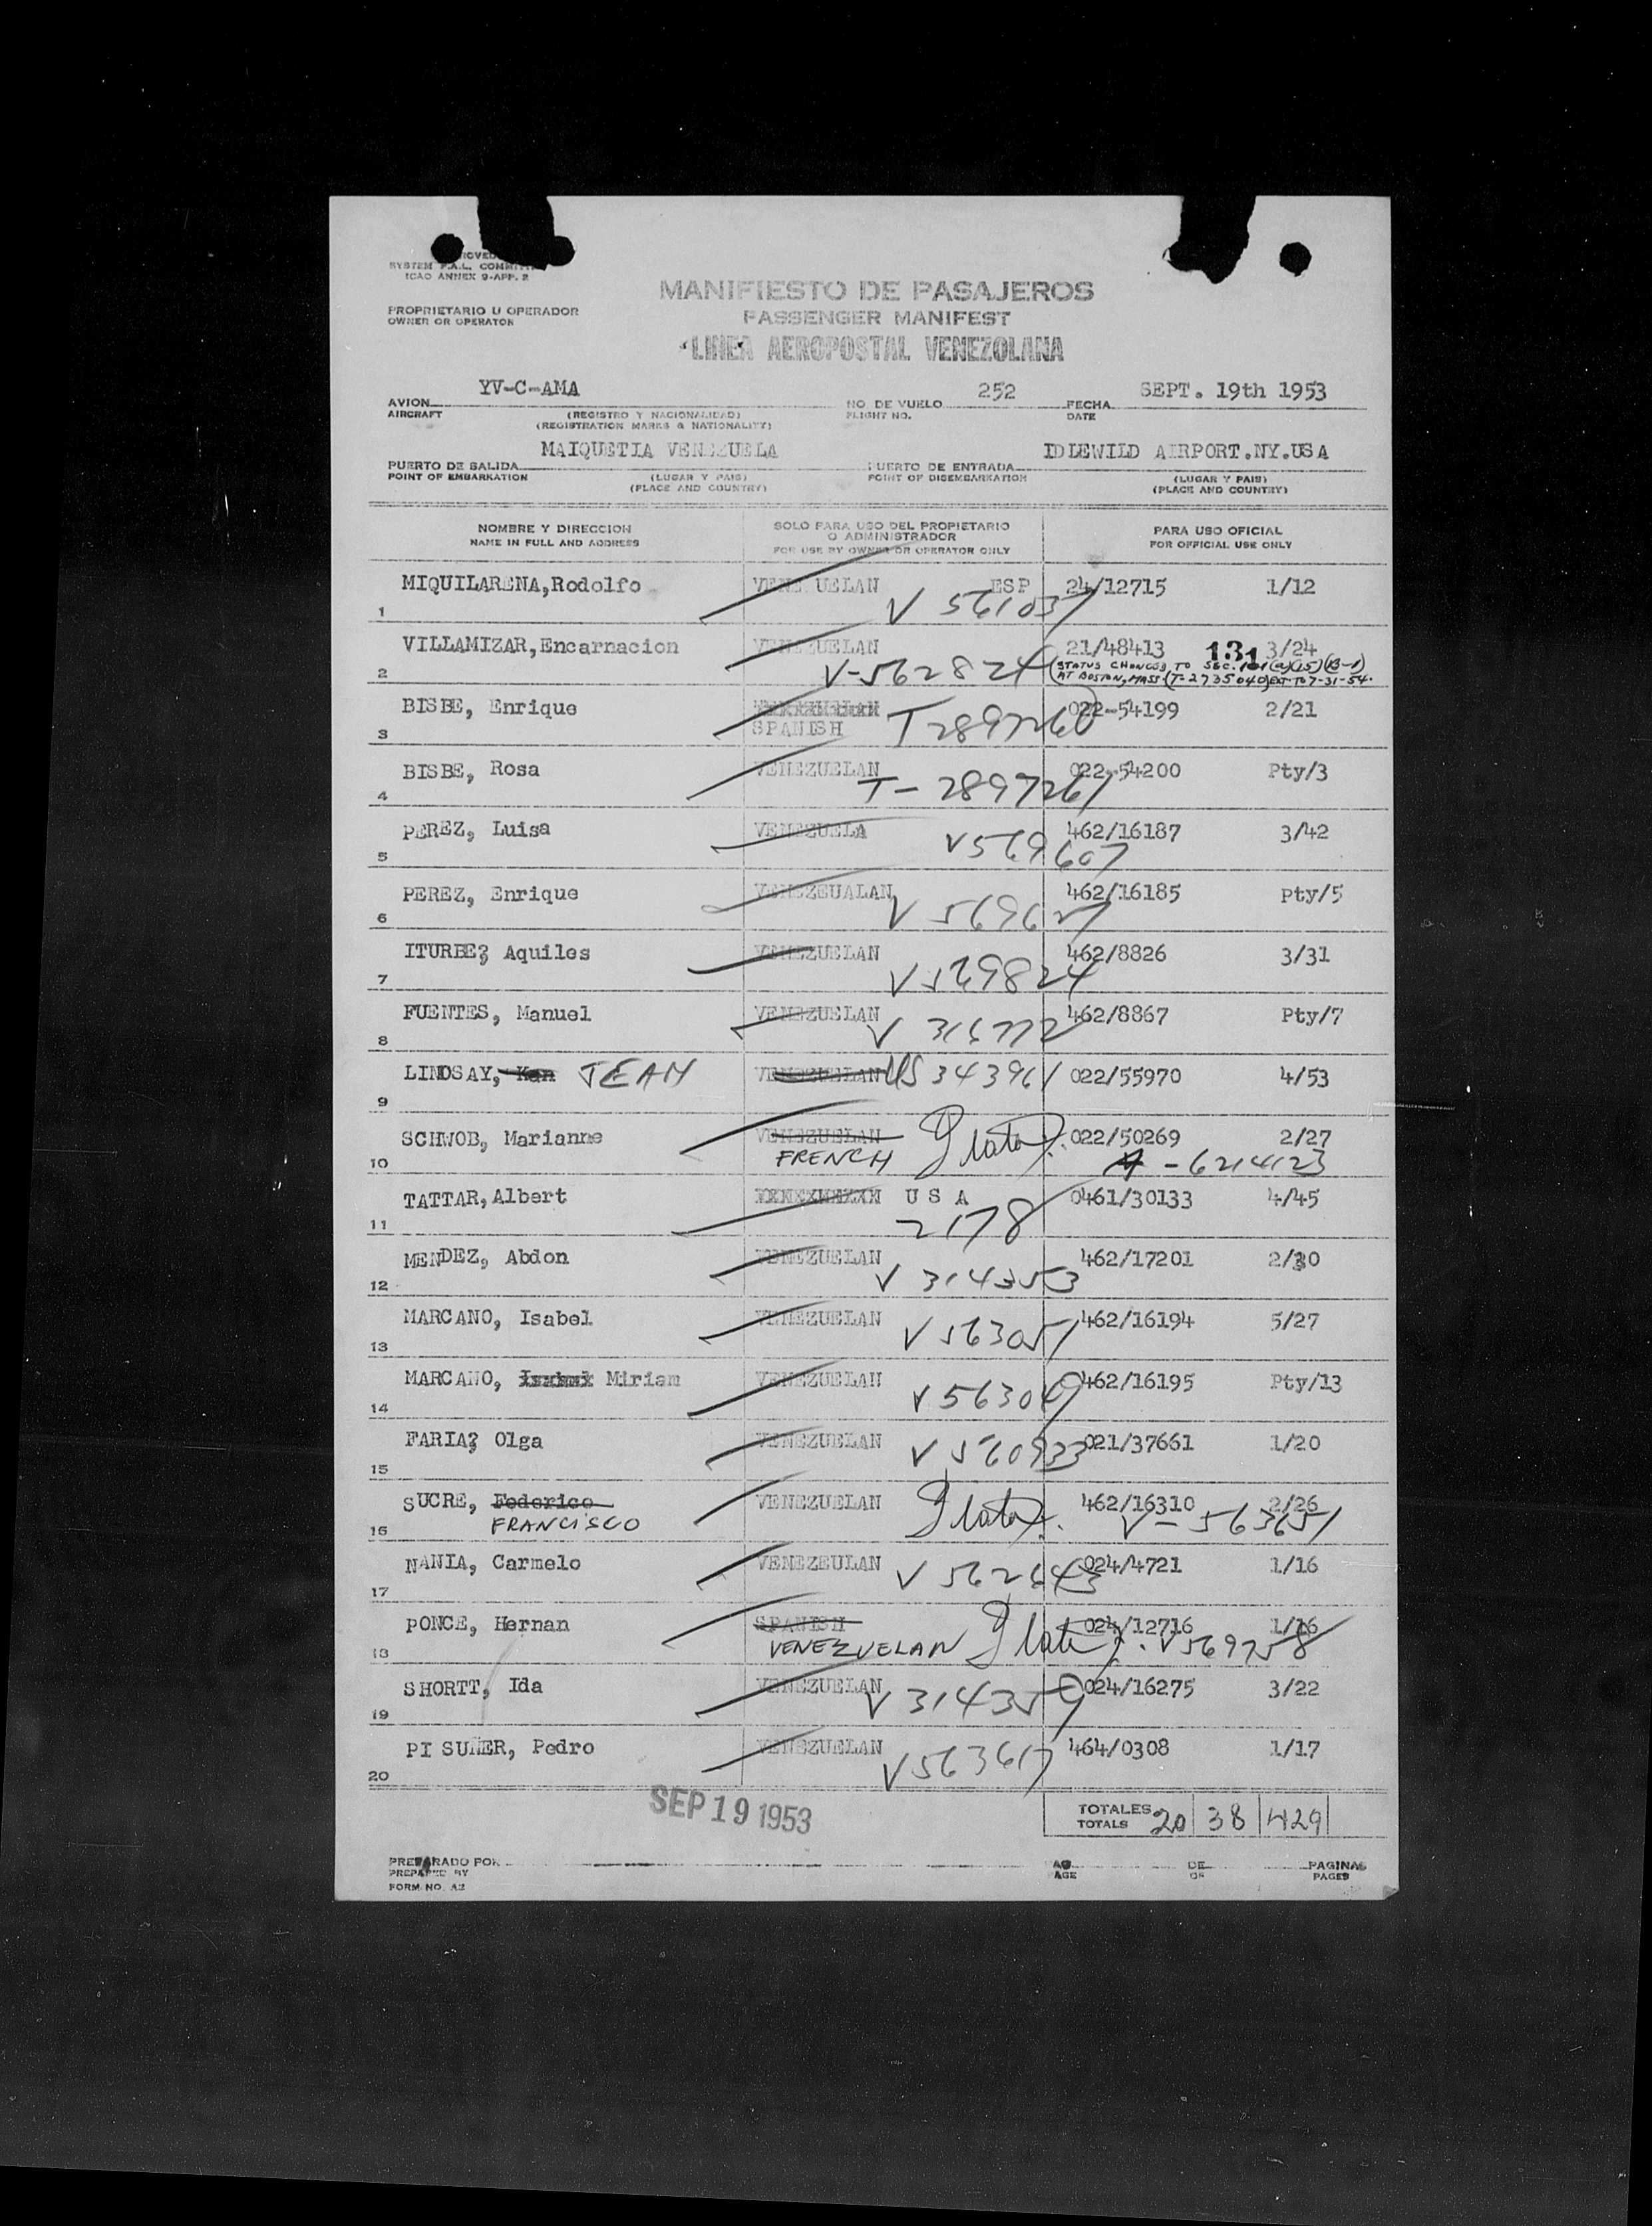 SYSTEM F.A.L.
ICAO ANNEX 9-APP. 2
MANIFIESTO DE PASAJEROS
PROPRIETARIO U OPERADOR
OWNER OR OPERATOR
PASSENGER MANIFEST
LINEA AEROPOSTAL VENEZOLANA
YV-C-AMA 252 SEPT. 19th 1953
AVION NO. DE VUELO FECHA
AIRCRAFT (REGISTRO Y NACIONALIDAD) FLIGHT NO. DATE
(REGISTRATION MARKS & NATIONALITY)
MAIQUETIA VENEZUELA IDLEWILD AIRPORT.NY.USA
PUERTO DE SALIDA PUERTO DE ENTRADA
POINT OF EMBARKATION (LUGAR Y PAIS) POINT OF DISEMBARKATION (LUGAR Y PAIS)
(PLACE AND COUNTRY) (PLACE AND COUNTRY)
NOMBRE Y DIRECCION SOLO PARA USO DEL PROPIETARIO PARA USO OFICIAL
O ADMINISTRADOR
NAME IN FULL AND ADDRESS FOR USE BY OWNER OR OPERATOR ONLY FOR OFFICIAL USE ONLY
MIQUILARENA,Rodolfo VENEZUELAN ESP 24/12715 1/12
1 V 561037
VILLAMIZAR,Encarnacion VENEZUELAN 21/48413 131 3/24
2 V-562824 (STATUS CHANGED TO SEC. 101(a)(15)(B-1)
AT BOSTON, MASS (T-2735040) EXT TO 7-31-54.
BISBE, Enrique VENEZUELAN 022-54199 2/21
3 SPANISH T-2897260
BISBE, Rosa VENEZUELAN 022-54200 Pty/3
4 T-2897261
PEREZ, Luisa VENEZUELA 462/16187 3/42
5 V569607
PEREZ, Enrique VENEZEUALAN 462/16185 Pty/5
6
ITURBE, Aquiles VENEZUELAN 462/8826 3/31
7 V569824
FUENTES, Manuel VENEZUELAN 462/8867 Pty/7
8 V 315772
LINDSAY, Kan JEAN VENEZUELAN US 343961 022/55970 4/53
9
SCHWOB, Marianne VENEZUELAN 022/50269 2/27
10 FRENCH A-6214123
TATTAR,Albert U S A 0461/30133 4/45
11 2178
MENDEZ, Abdon VENEZUELAN 462/17201 2/30
12 V 314353
MARCANO, Isabel VENEZUELAN 462/16194 5/27
13 V 563051
MARCANO, Isabel Miriam VENEZUELAN 462/16195 Pty/13
14 V 563049
FARIA, Olga VENEZUELAN 021/37661 1/20
15 V 560933
SUCRE, Federico VENEZUELAN 462/16310 2/26
16 FRANCISCO V-563651
NANIA, Carmelo VENEZEULAN 024/4721 1/16
17 V 562643
PONCE, Hernan SPANISH 024/12716 1/16
18 VENEZUELAN V569758
SHORTT, Ida VENEZUELAN 024/16275 3/22
19 V 314359
PI SUNER, Pedro VENEZUELAN 464/0308 1/17
20 V563617
SEP 19 1953
TOTALES
TOTALS 20 38 429
PREPARADO POR DE PAGINAS
PREPARED BY AGE OF PAGES
FORM NO. A2